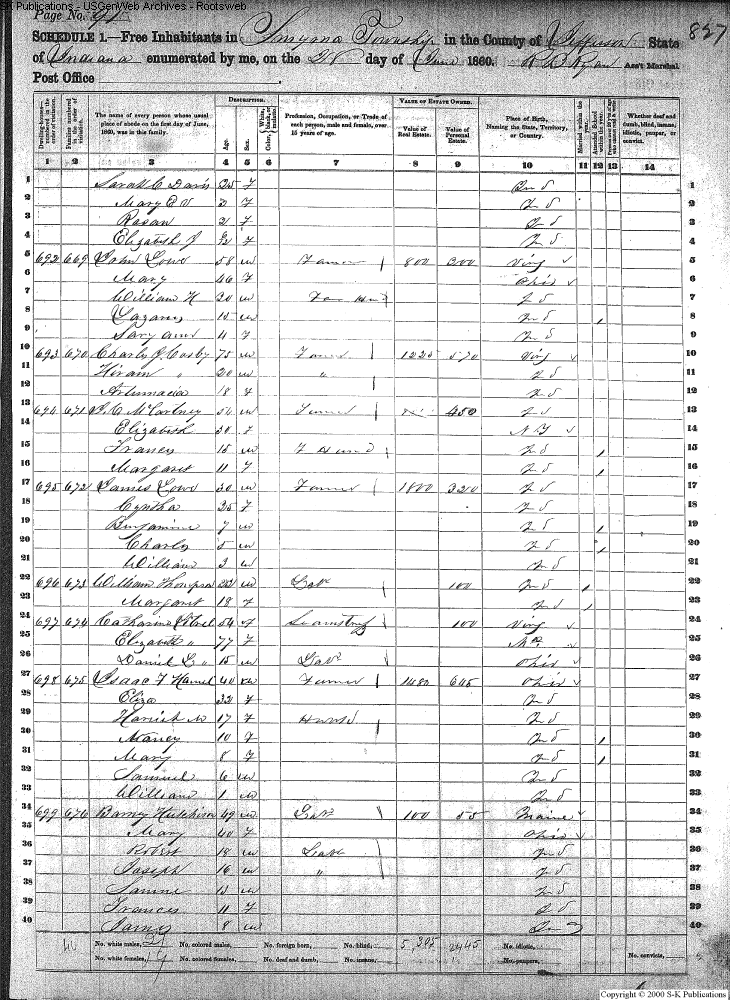 S-K Publications - USGenWeb Archives - Rootsweb
Page No. 91
827
SCHEDULE 1.—Free Inhabitants in Smyrna Township in the County of Jefferson State
of Indiana enumerated by me, on the day of June 1860. Ryan Ass't Marshal.
Post Office
Dwelling-houses—numbered in the order of visitation.
Families numbered in the order of visitation.
The name of every person whose usual place of abode on the first day of June, 1860, was in this family.
DESCRIPTION.
Age.
Sex.
Color, White, black, or mulatto.
Profession, Occupation, or Trade of each person, male and female, over 15 years of age.
VALUE OF ESTATE OWNED.
Value of Real Estate.
Value of Personal Estate.
Place of Birth, Naming the State, Territory, or Country.
Married within the year.
Attended School within the year.
Whether deaf and dumb, blind, insane, idiotic, pauper, or convict.
1 2 3 4 5 6 7 8 9 10 11 12 13 14
1 Sarah C Davis 25 F Ind 1
2 Mary E V 3 F Ind 2
3 Rosan 2 F Ind 3
4 Elizabeth J F Ind 4
5 692 669 John Lowe 58 m Farmer 800 300 Virg 5
6 Mary 46 F Ohio 6
7 William H 20 m Ind 7
8 Lazarus 10 m Ind 8
9 Sary ann 4 F Ind 9
10 693 670 Charly J Cosby 75 m Farmer 1225 570 Virg 10
11 Hiram " 20 m " Ind 11
12 Artumacia 18 F Ind 12
13 694 671 C McCartney 54 m Farmer 450 Ind 13
14 Elizabeth 50 F N Y 14
15 Francis 15 m F Hand Ind 15
16 Margaret 11 F Ind 16
17 695 672 James Lowe 30 m Farmer 1800 320 Ind 17
18 Cyntha 25 F Ind 18
19 Benjamine 7 m Ind 19
20 Charly 5 m Ind 20
21 William 3 m Ind 21
22 696 673 William Thompson 22 m Lab 100 Ind 22
23 Margaret 18 F Ind 23
24 697 674 Catharine 54 F Seamstress 100 Virg 24
25 Elizabeth " 77 F 25
26 Daniel L " 15 m Lab Ohio 26
27 698 675 Isaac F Hamel 40 m Farmer 1480 645 Ohio 27
28 Eliza 32 F Ind 28
29 Harriet M 17 F Ind 29
30 Nancy 10 F Ind 30
31 Mary 8 F Ind 31
32 Samuel 6 m Ind 32
33 William 1 m Ind 33
34 699 676 Barny Hutchison 49 m Lab 100 55 Maine 34
35 Mary 40 F Ohio 35
36 Robert 18 m Lab Ind 36
37 Joseph 16 m " Ind 37
38 13 m Ind 38
39 Frances 11 F Ind 39
40 James 8 m Ind 40
No. white males, No. colored males, No. foreign born, No. blind, 5,395 2445 No. idiotic,
No. white females, No. colored females, No. deaf and dumb, No. insane, No. paupers, No. convicts,
Copyright © 2000 S-K Publications